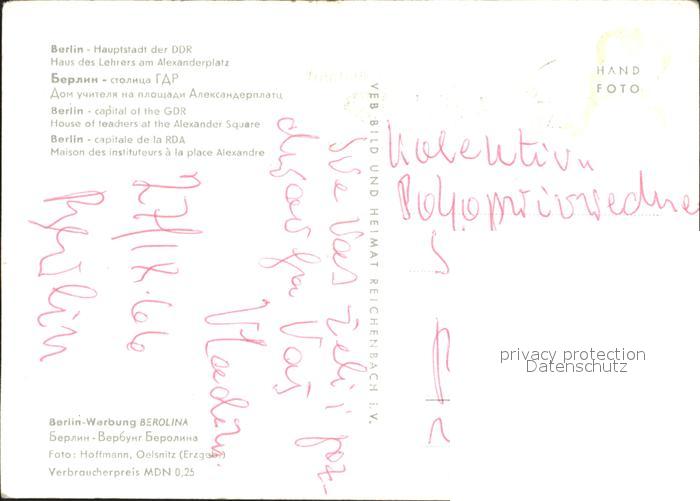 Berlin - Hauptstadt der DDR
Haus des Lehrers am Alexanderplatz
Берлин - столица ГДР
Дом учителя на площади Александерплатц
Berlin - capital of the GDR
House of teachers at the Alexander Square
Berlin - capitale de la RDA
Maison des instituteurs à la place Alexandre
HAND
FOTO
VEB BILD UND HEIMAT REICHENBACH i. V.
Kolektivu
Poljoprivredne
S
Sve Vas želi i poz-
Vaš
Vladim.
27/IX.66
Berlin
privacy protection
Datenschutz
Berlin-Werbung BEROLINA
Берлин - Вербунг Беролина
Foto: Hoffmann, Oelsnitz (Erzgeb.)
Verbraucherpreis MDN 0,25